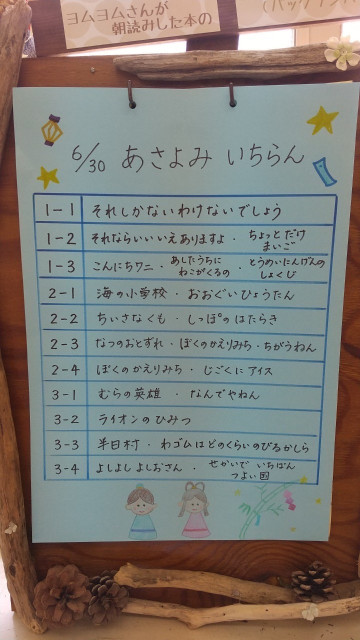 ヨムヨムさんが
朝読みした本の
6/30 あさよみ いちらん
1-1 それしかないわけないでしょう
1-2 それならいいいえありますよ・ちょっとだけまいご
1-3 こんにちワニ・あしたうちにねこがくるの・とうめいにんげんのしょくじ
2-1 海の小学校・おおぐいひょうたん
2-2 ちいさなくも・しっぽのはたらき
2-3 なつのおとずれ・ぼくのかえりみち・ちがうねん
2-4 ぼくのかえりみち・じごくにアイス
3-1 むらの英雄・なんでやねん
3-2 ライオンのひみつ
3-3 半日村・わゴムはどのくらいのびるかしら
3-4 よしよしよしおさん・せかいでいちばんつよい国